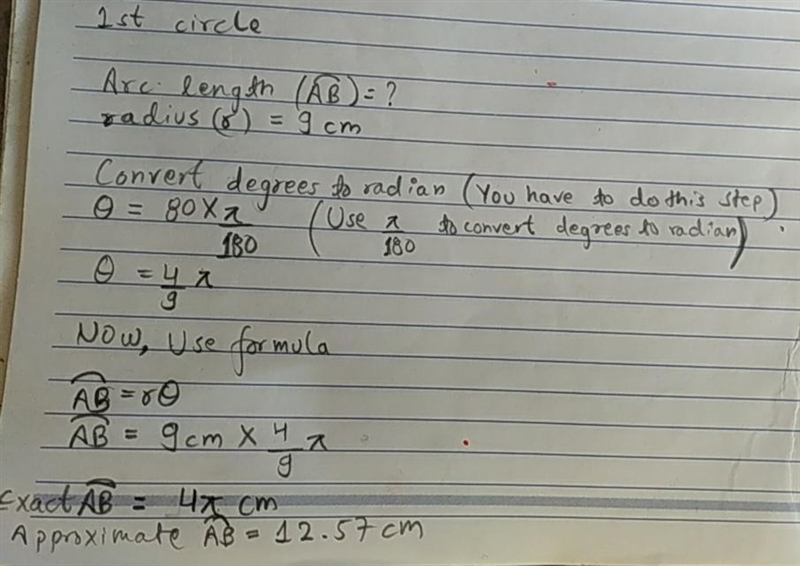 1st circle
Arc length (AB)=?
radius(r) = 9 cm
Convert degrees to radian (You have to do this step)
θ = 80 × π/180 (Use π/180 to convert degrees to radian)
θ = 4/9 π
Now, Use formula
AB = rθ
AB = 9cm × 4/9 π
Exact AB = 4π cm
Approximate AB = 12.57 cm